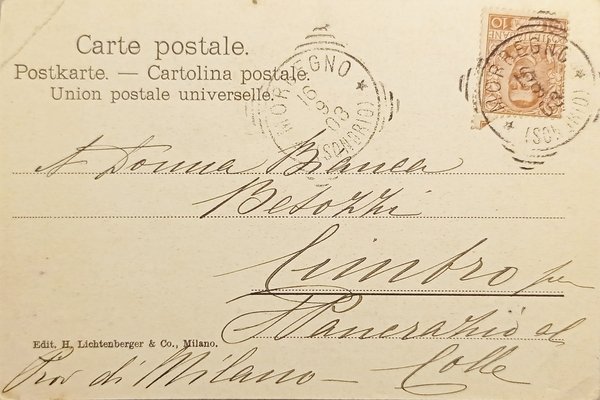 Carte postale.
Postkarte. — Cartolina postale.
Union postale universelle.
MORBEGNO
16 9 03
(SONDRIO)
10
MORBEGNO
16 9 03
(SONDRIO)
A Donna Bianca
Besozzi
Cimbro per
S. Pancrazio al
Colle
Prov di Milano —
Edit. H. Lichtenberger & Co., Milano.